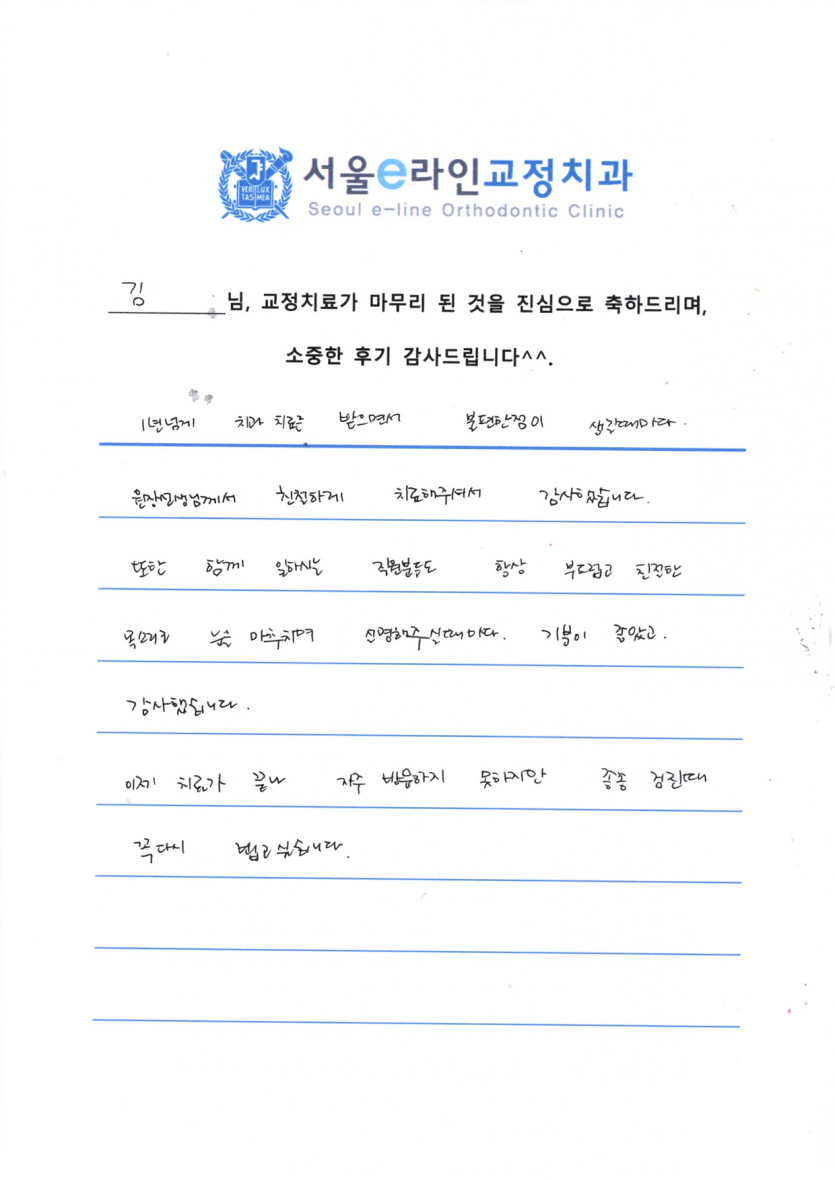 서울e라인교정치과
Seoul e-line Orthodontic Clinic
VERI LUX
TAS MEA
김 님, 교정치료가 마무리 된 것을 진심으로 축하드리며,
소중한 후기 감사드립니다^^.
1년넘게 치과 치료를 받으면서 불편한점이 생길때마다.
원장선생님께서 친절하게 치료해주셔서 감사했습니다.
또한 함께 일하시는 직원분들도 항상 부드럽고 친절한
목소리로 눈을 마추치며 설명해주실때마다. 기분이 좋았고.
감사했습니다.
이제 치료가 끝나 자주 방문하지 못하지만 종종 검진때
꼭다시 뵙고싶습니다.